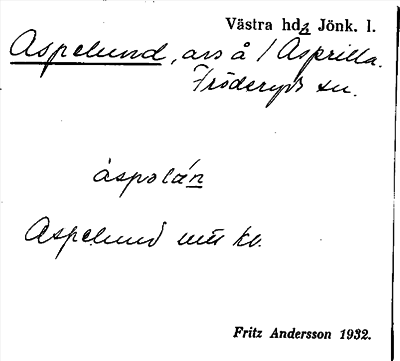 Västra hd Jönk. l.
Aspelund, avs å 1 Asprilla.
Fröderyds sn.
àspolán
Aspelund 1/1 kb.
Fritz Andersson 1932.